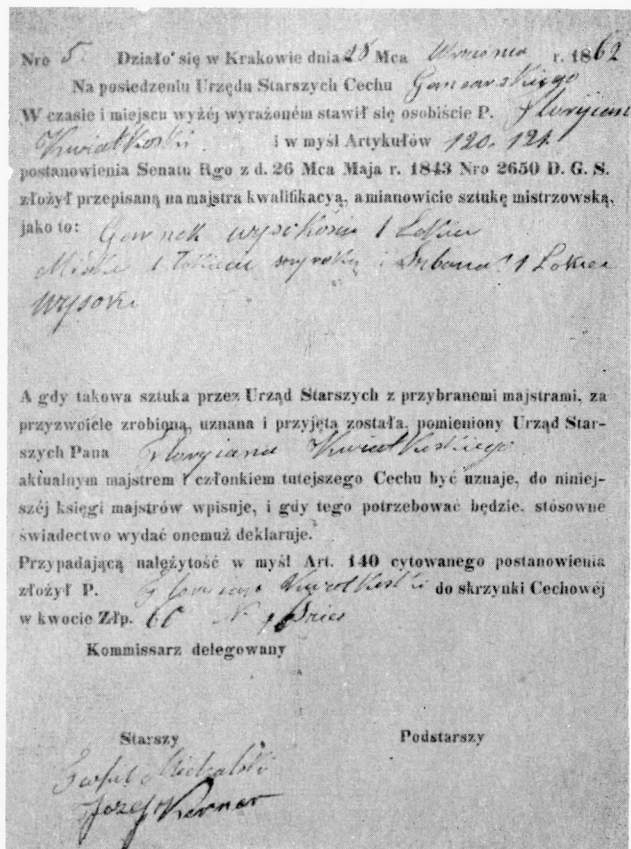 Nro 5. Działo się w Krakowie dnia 28 Mca Września r. 1862
Na posiedzeniu Urzędu Starszych Cechu Garncarskiego
W czasie i miejscu wyżéj wyrażoném stawił się osobiście P. Floryian
Kwiatkoski i w myśl Artykułów 120. 121.
postanowienia Senatu Rgo z d. 26 Mca Maja r. 1843 Nro 2650 D. G. S.
złożył przepisaną na majstra kwalifikacyą, a mianowicie sztukę mistrzowską,
jako to: Garnek wysokości 1 Łokia
1 wysoki i 1 Łokiec
wysoki
A gdy takowa sztuka przez Urząd Starszych z przybranemi majstrami, za
przyzwoicie zrobioną, uznana i przyjęta została, pomieniony Urząd Star-
szych Pana Floryiana Kwiatkoskiego
aktualnym majstrem i członkiem tutejszego Cechu być uznaje, do niniej-
széj księgi majstrów wpisuje, i gdy tego potrzebować będzie, stósowne
świadectwo wydać onemuż deklaruje.
Przypadającą należytość w myśl Art. 140 cytowanego postanowienia
złożył P. Floriian Kwiatkoski do skrzynki Cechowéj
w kwocie Złp. 60
Kommissarz delegowany
Starszy Podstarszy
Michalski
Jozef Kerner